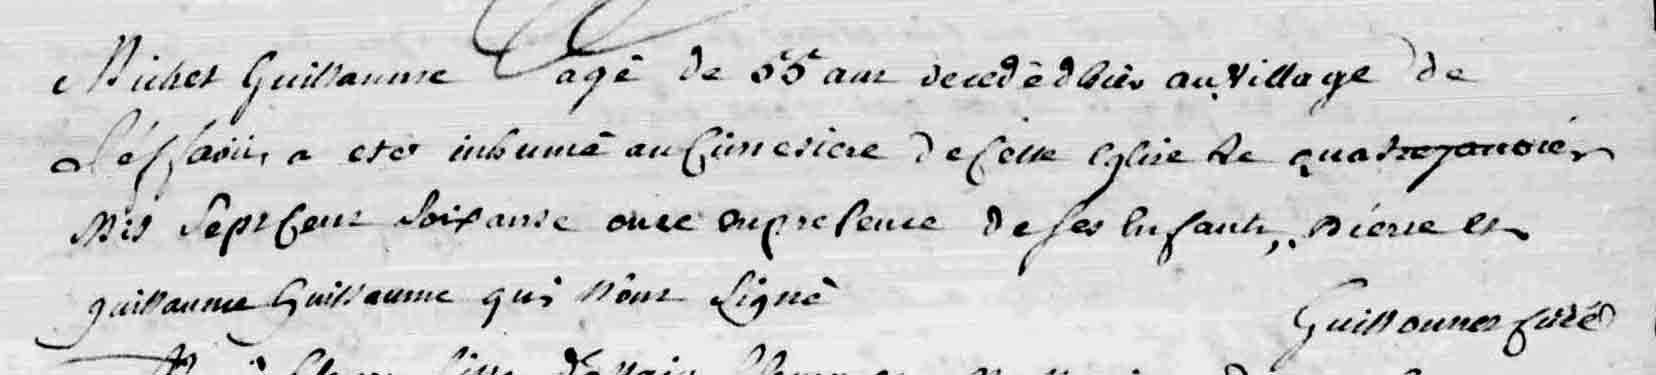 Michel Guillaume agé de 55 ans decedé d'hier au village de
a eté inhumé au Cimetiere de Cette Eglise le quatre janvier
Mil Sept Cent Soixante onze en presence de ses Enfants, Pierre et
guillaume Guillaume qui n'ont Signé
Guillaumet Curé